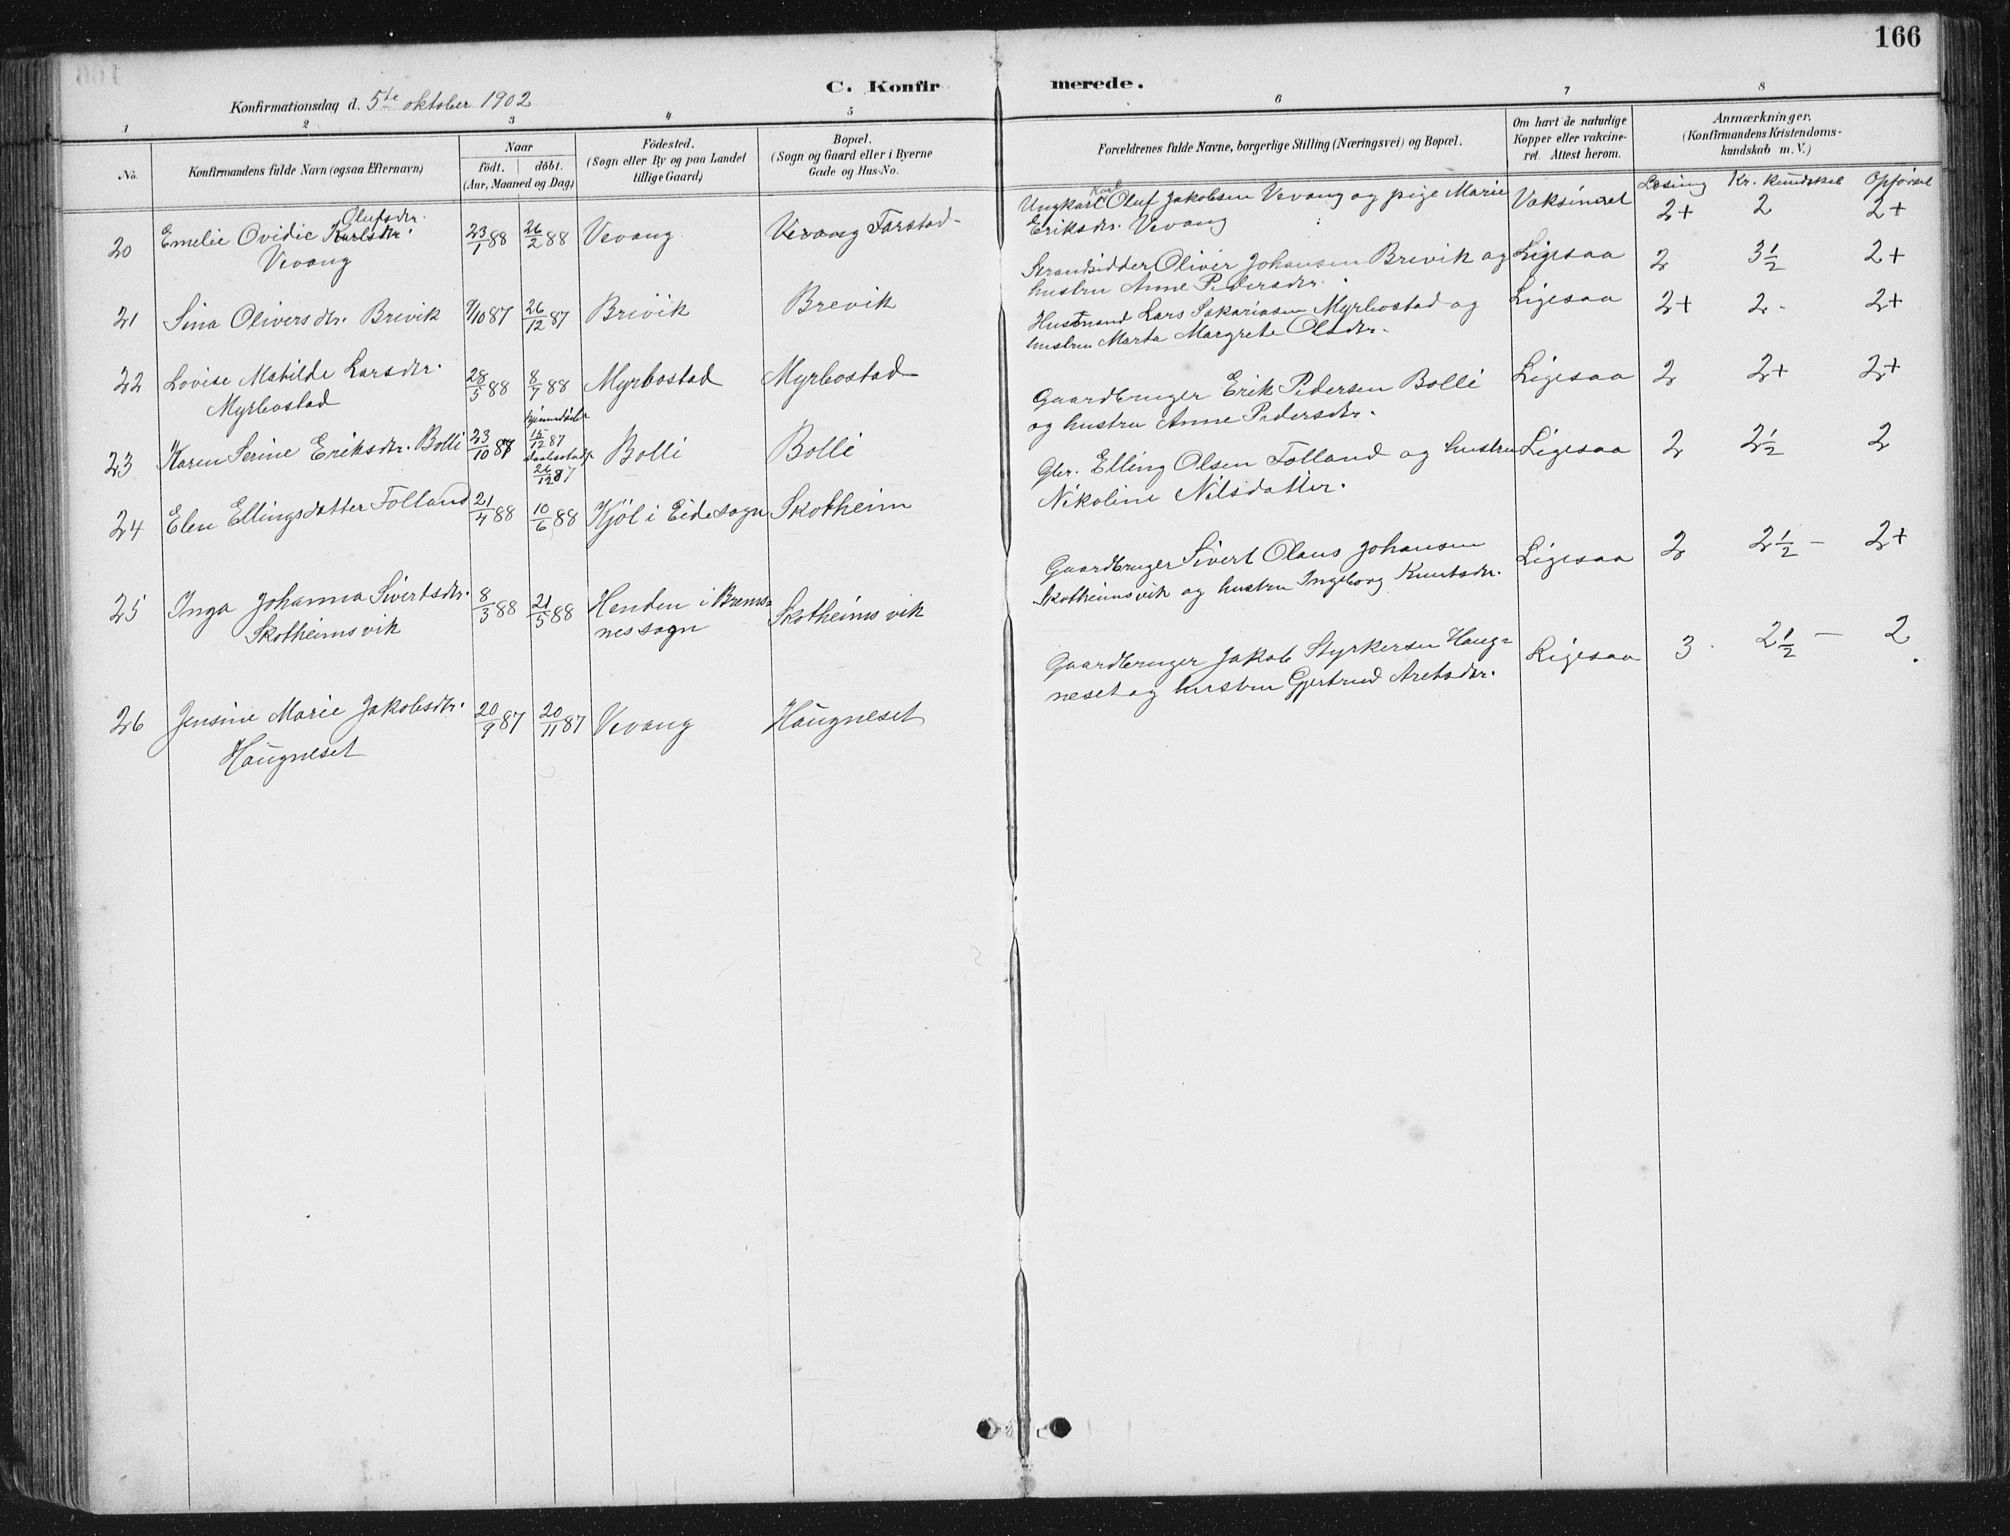 166
C. Konfirmerede.
Konfirmationsdag d. 5te oktober 1902
1 2 3 4 5 6 7 8
No.
Konfirmandens fulde Navn (ogsaa Efternavn)
Naar
födt. döbt.
(Aar, Maaned og Dag)
Födested.
(Sogn eller By og paa Landet
tillige Gaard)
Bopæl.
(Sogn og Gaard eller i Byerne
Gade og Hus-No.
Forældrenes fulde Navne, borgerlige Stilling (Næringsvei) og Bopæl.
Om havt de naturlige
Kopper eller vakcine-
ret. Attest herom.
Anmærkninger.
(Konfirmandens Kristendoms-
kundskab m. V.)
Læsing Kr. kundskab Opförsel
20 Emelie Ovidie Karlsdtr. Olufsdtr.
Vevang
23/1 88 26/2 88 Vevang Vevang Farstad
Ungkarl Karl Oluf Jakobsen Vevang og pige Marie
Eriksdtr. Vevang
Vaksineret 2+ 2 2+
21 Sina Oliversdtr. Brevik 9/10 87 26/12 87 Brevik Brevik
Strandsidder Oliver Johansen Brevik og
hustru Anne Pedersdtr.
Ligesaa 2 3½ 2+
22 Lovise Matilde Larsdtr.
Myrbostad
28/5 88 8/7 88 Myrbostad Myrbostad
Husmand Lars Sakariasen Myrbostad og
hustru Marta Margrete Olsdtr.
Ligesaa 2+ 2- 2+
23 Karen Serine Eriksdtr. Bolli 23/10 87 hjemmedöbt 15/12 87 26/12 87 Bolli Bolli
Gaardbruger Erik Pedersen Bolli
og hustru Anne Pedersdtr.
Ligesaa 2 2+ 2+
24 Elen Ellingsdatter Folland 21/4 88 10/6 88 Kjöl i Eide sogn Skotheim
Gbr. Elling Olsen Folland og hustru
Nikoline Nilsdatter.
Ligesaa 2 2½ 2
25 Inga Johanna Sivertsdtr.
Skotheimsvik
8/3 88 21/5 88 Henden i Brems-
nes sogn
Skotheimsvik
Gaardbruger Sivert Olaus Johansen
Skotheimsvik og hustru Ingeborg Knutsdtr.
Ligesaa 2 2½ - 2+
26 Jensine Marie Jakobsdtr.
Haugneset
20/9 87 20/11 87 Vevang Haugneset
Gaardbruger Jakob Styrkersen Haug-
neset og hustru Gjertrud Aretsdtr.
Ligesaa 3 2½ - 2